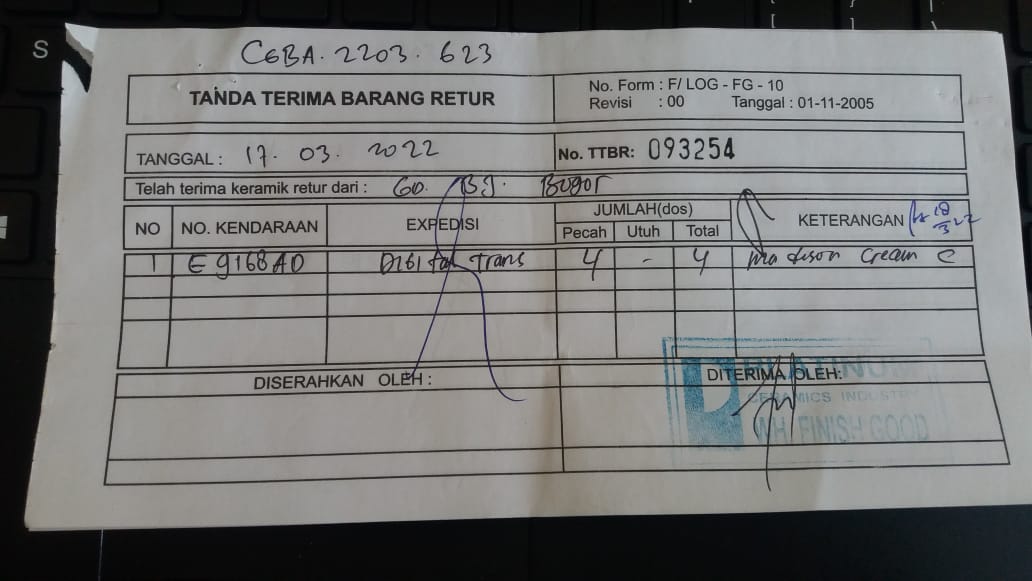 CGBA. 2203. 623
TANDA TERIMA BARANG RETUR
No. Form : F/ LOG - FG - 10
Revisi : 00 Tanggal : 01-11-2005
TANGGAL : 17. 03. 2022
No. TTBR: 093254
Telah terima keramik retur dari : GD. BJ. Bogor
NO NO. KENDARAAN EXPEDISI JUMLAH(dos) KETERANGAN
18/3 22
Pecah Utuh Total
1 E 9168 AD Digital Trans 4 - 4 Madison Cream C
DISERAHKAN OLEH :
DITERIMA OLEH:
PLATINUM
CERAMICS INDUSTRY
WH. FINISH GOOD
S